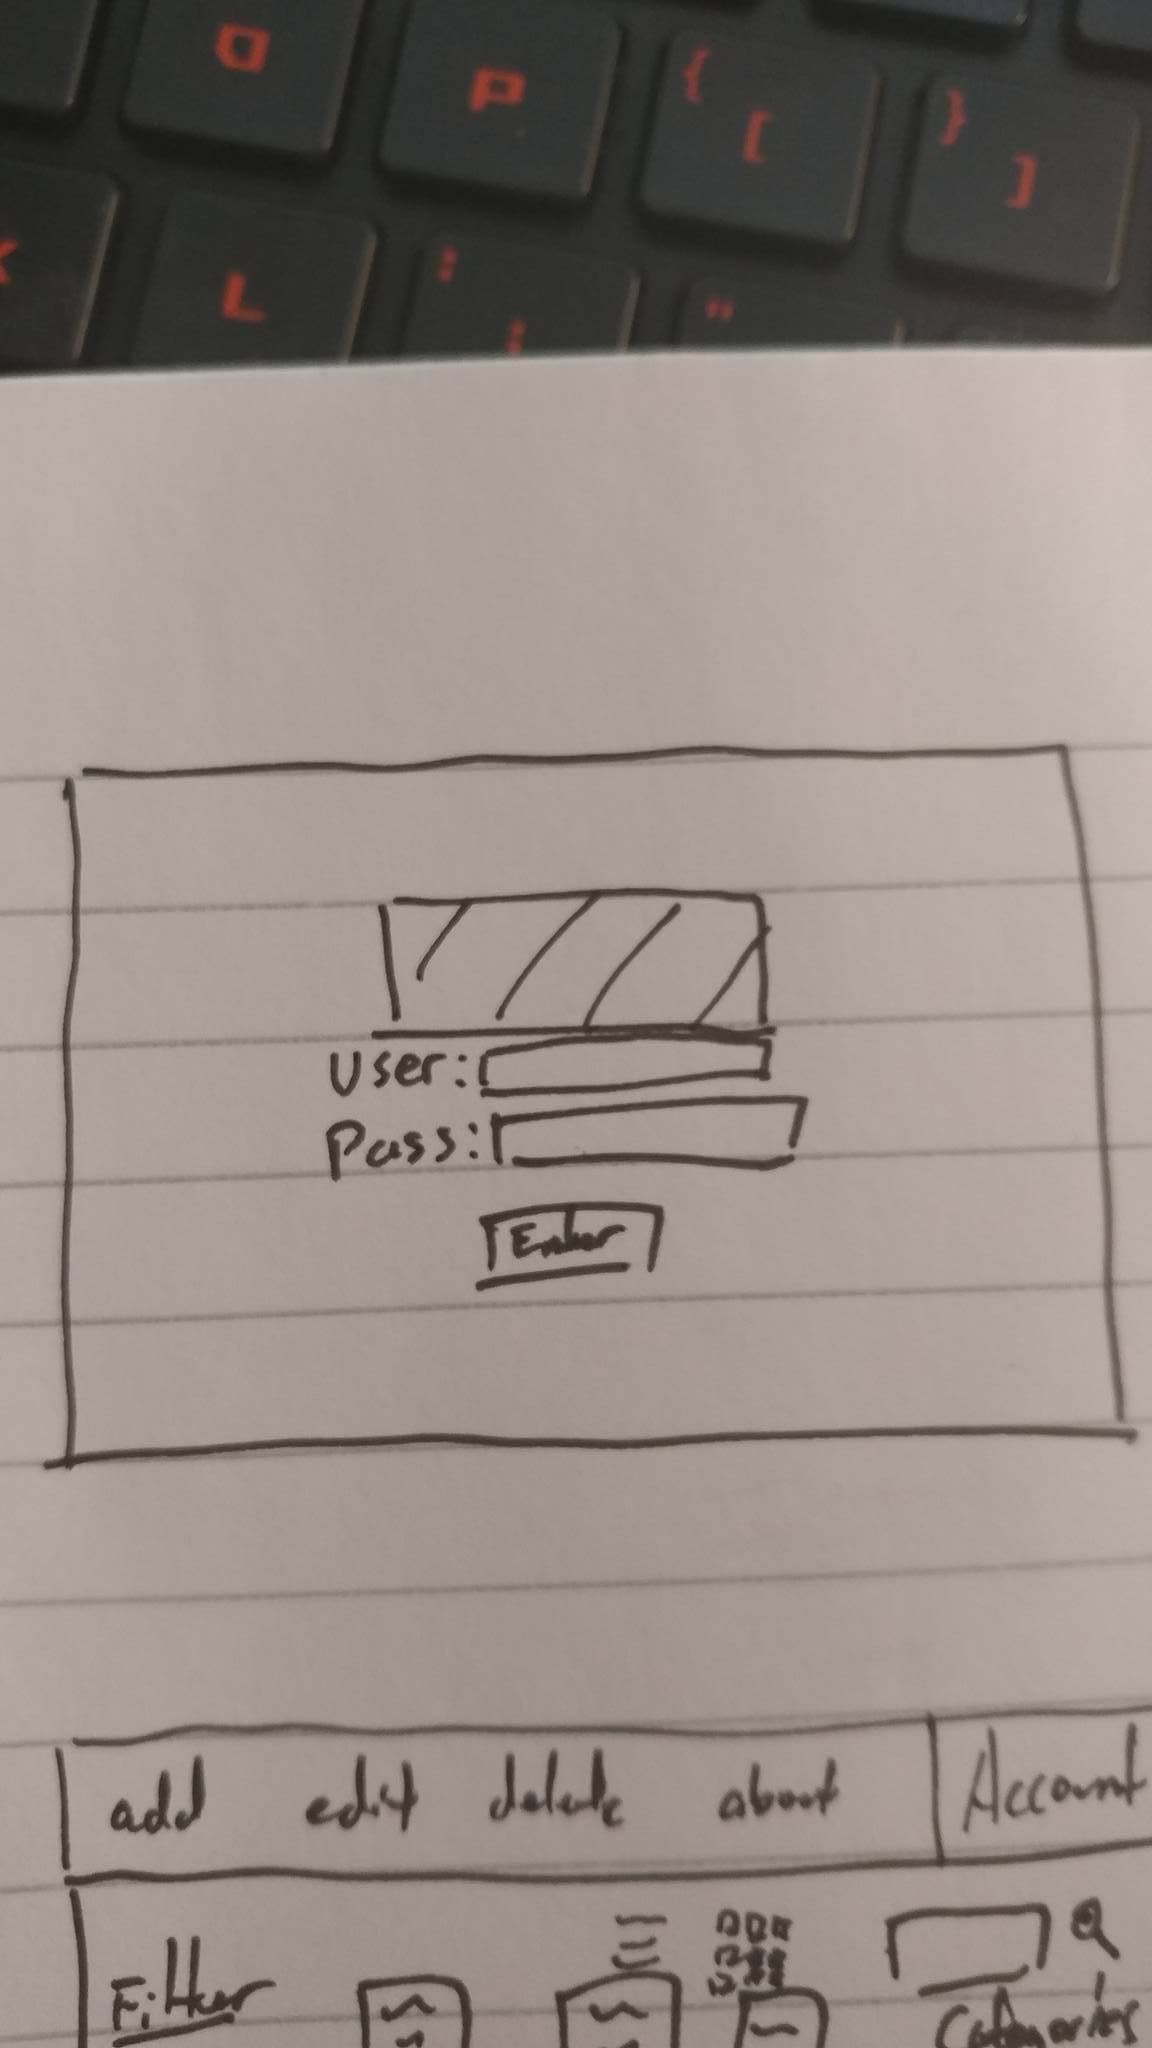 O P { [ } ]
K L : ; "
User:
Pass:
Enter
add edit delete about Account
Filter
Categories